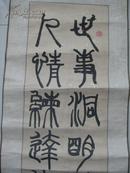 世事洞明
人情練達